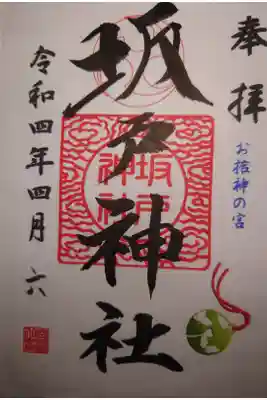 奉拝
お諾神の宮
坂戸神社
坂戸
神社
令和四年四月六